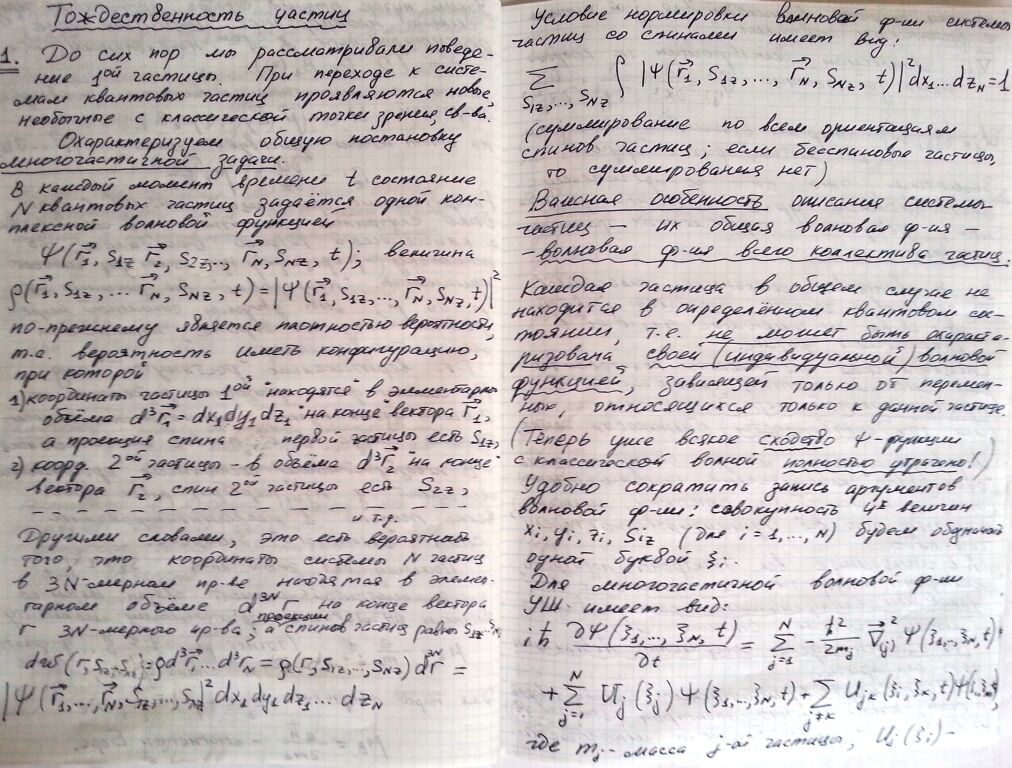 Тождественность частиц
1. До сих пор мы рассматривали поведе-
ние 1ой частицы. При переходе к систе-
мам квантовых частиц проявляются новые,
необычные с классической точки зрения, св-ва.
Охарактеризуем общую постановку
многочастичной задачи.
В каждый момент времени t состояние
N квантовых частиц задаётся одной ком-
плексной волновой функцией
Ψ(r⃗₁, S₁z r⃗₂, S₂z,..., r⃗N, SNz, t); величина
ρ(r⃗₁, S₁z,... r⃗N, SNz, t) = |Ψ(r⃗₁, S₁z,..., r⃗N, SNz, t)|²
по-прежнему является плотностью вероятности,
т.е. вероятность иметь конфигурацию,
при которой
1) координаты частицы 1ой "находятся" в элементарн.
объёме d³r⃗₁ = dx₁dy₁dz₁ "на конце" вектора r⃗₁,
а проекция спина первой частицы есть S₁z,
2) коорд. 2ой частицы - в объёме d³r⃗₂ "на конце"
вектора r⃗₂, спин 2ой частицы есть S₂z,
и т.д.
Другими словами, это есть вероятность
того, что координаты системы N частиц
в 3N-мерном пр-ве находятся в элемен-
тарном объёме d³ᴺr на конце вектора
r 3N-мерного пр-ва, а проекции спинов частиц равны S₁z... SNz
= ρd³r⃗₁...d³r⃗N = ρ(r, S₁z,..., SNz)d³ᴺr =
|Ψ(r⃗₁,..., r⃗N, S₁z,..., SNz)|² dx₁dy₁dz₁... dzN
Условие нормировки волновой ф-ии системы
частиц со спинами имеет вид:
∑ S₁z,..., SNz ∫ |Ψ(r⃗₁, S₁z,..., r⃗N, SNz, t)|² dx₁... dzN = 1
(суммирование по всем ориентациям
спинов частиц; если бесспиновые частицы,
то суммирования нет)
Важная особенность описания системы
частиц - их общая волновая ф-ия -
- волновая ф-ия всего коллектива частиц.
Каждая частица в общем случае не
находится в определённом квантовом сос-
тоянии, т.е. не может быть охаракте-
ризована своей (индивидуальной) волновой
функцией, зависящей только от перемен-
ных, относящихся только к данной частице.
(Теперь уже всякое сходство Ψ-функции
с классической волной полностью утрачено!)
Удобно сократить запись аргументов
волновой ф-ии: совокупность 4х величин
xᵢ, yᵢ, zᵢ, Sᵢz (для i = 1,..., N) будем обозначать
одной буквой ξᵢ.
Для многочастичной волновой ф-ии
УШ имеет вид:
iħ ∂Ψ(ξ₁,..., ξN, t)/∂t = ∑ᴺⱼ₌₁ - ħ²/2mⱼ ∇⃗²(j) Ψ(ξ₁,..., ξN, t) +
+ ∑ᴺⱼ₌₁ Uⱼ(ξⱼ) Ψ(ξ₁,..., ξN, t) + ∑ⱼ≠ₖ Uⱼₖ(ξⱼ, ξₖ, t)Ψ(ξ₁...ξN, t),
где mⱼ - масса j-ой частицы, Uⱼ(ξⱼ) -